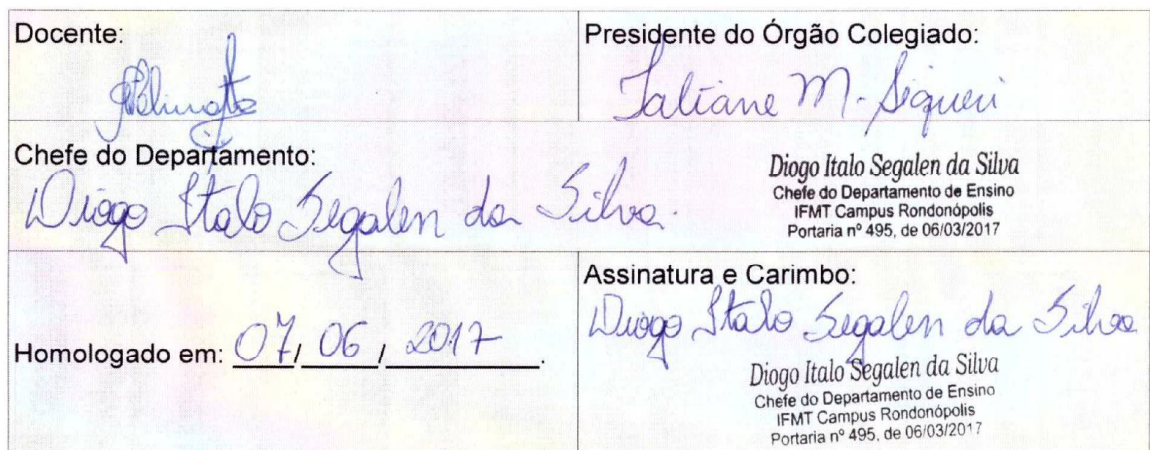 Docente:
Presidente do Órgão Colegiado:
Tatiane M. Siqueira
Chefe do Departamento:
Diogo Italo Segalen da Silva.
Diogo Italo Segalen da Silva
Chefe do Departamento de Ensino
IFMT Campus Rondonópolis
Portaria nº 495, de 06/03/2017
Homologado em: 07/ 06 / 2017.
Assinatura e Carimbo:
Diogo Italo Segalen da Silva
Diogo Italo Segalen da Silva
Chefe do Departamento de Ensino
IFMT Campus Rondonópolis
Portaria nº 495, de 06/03/2017